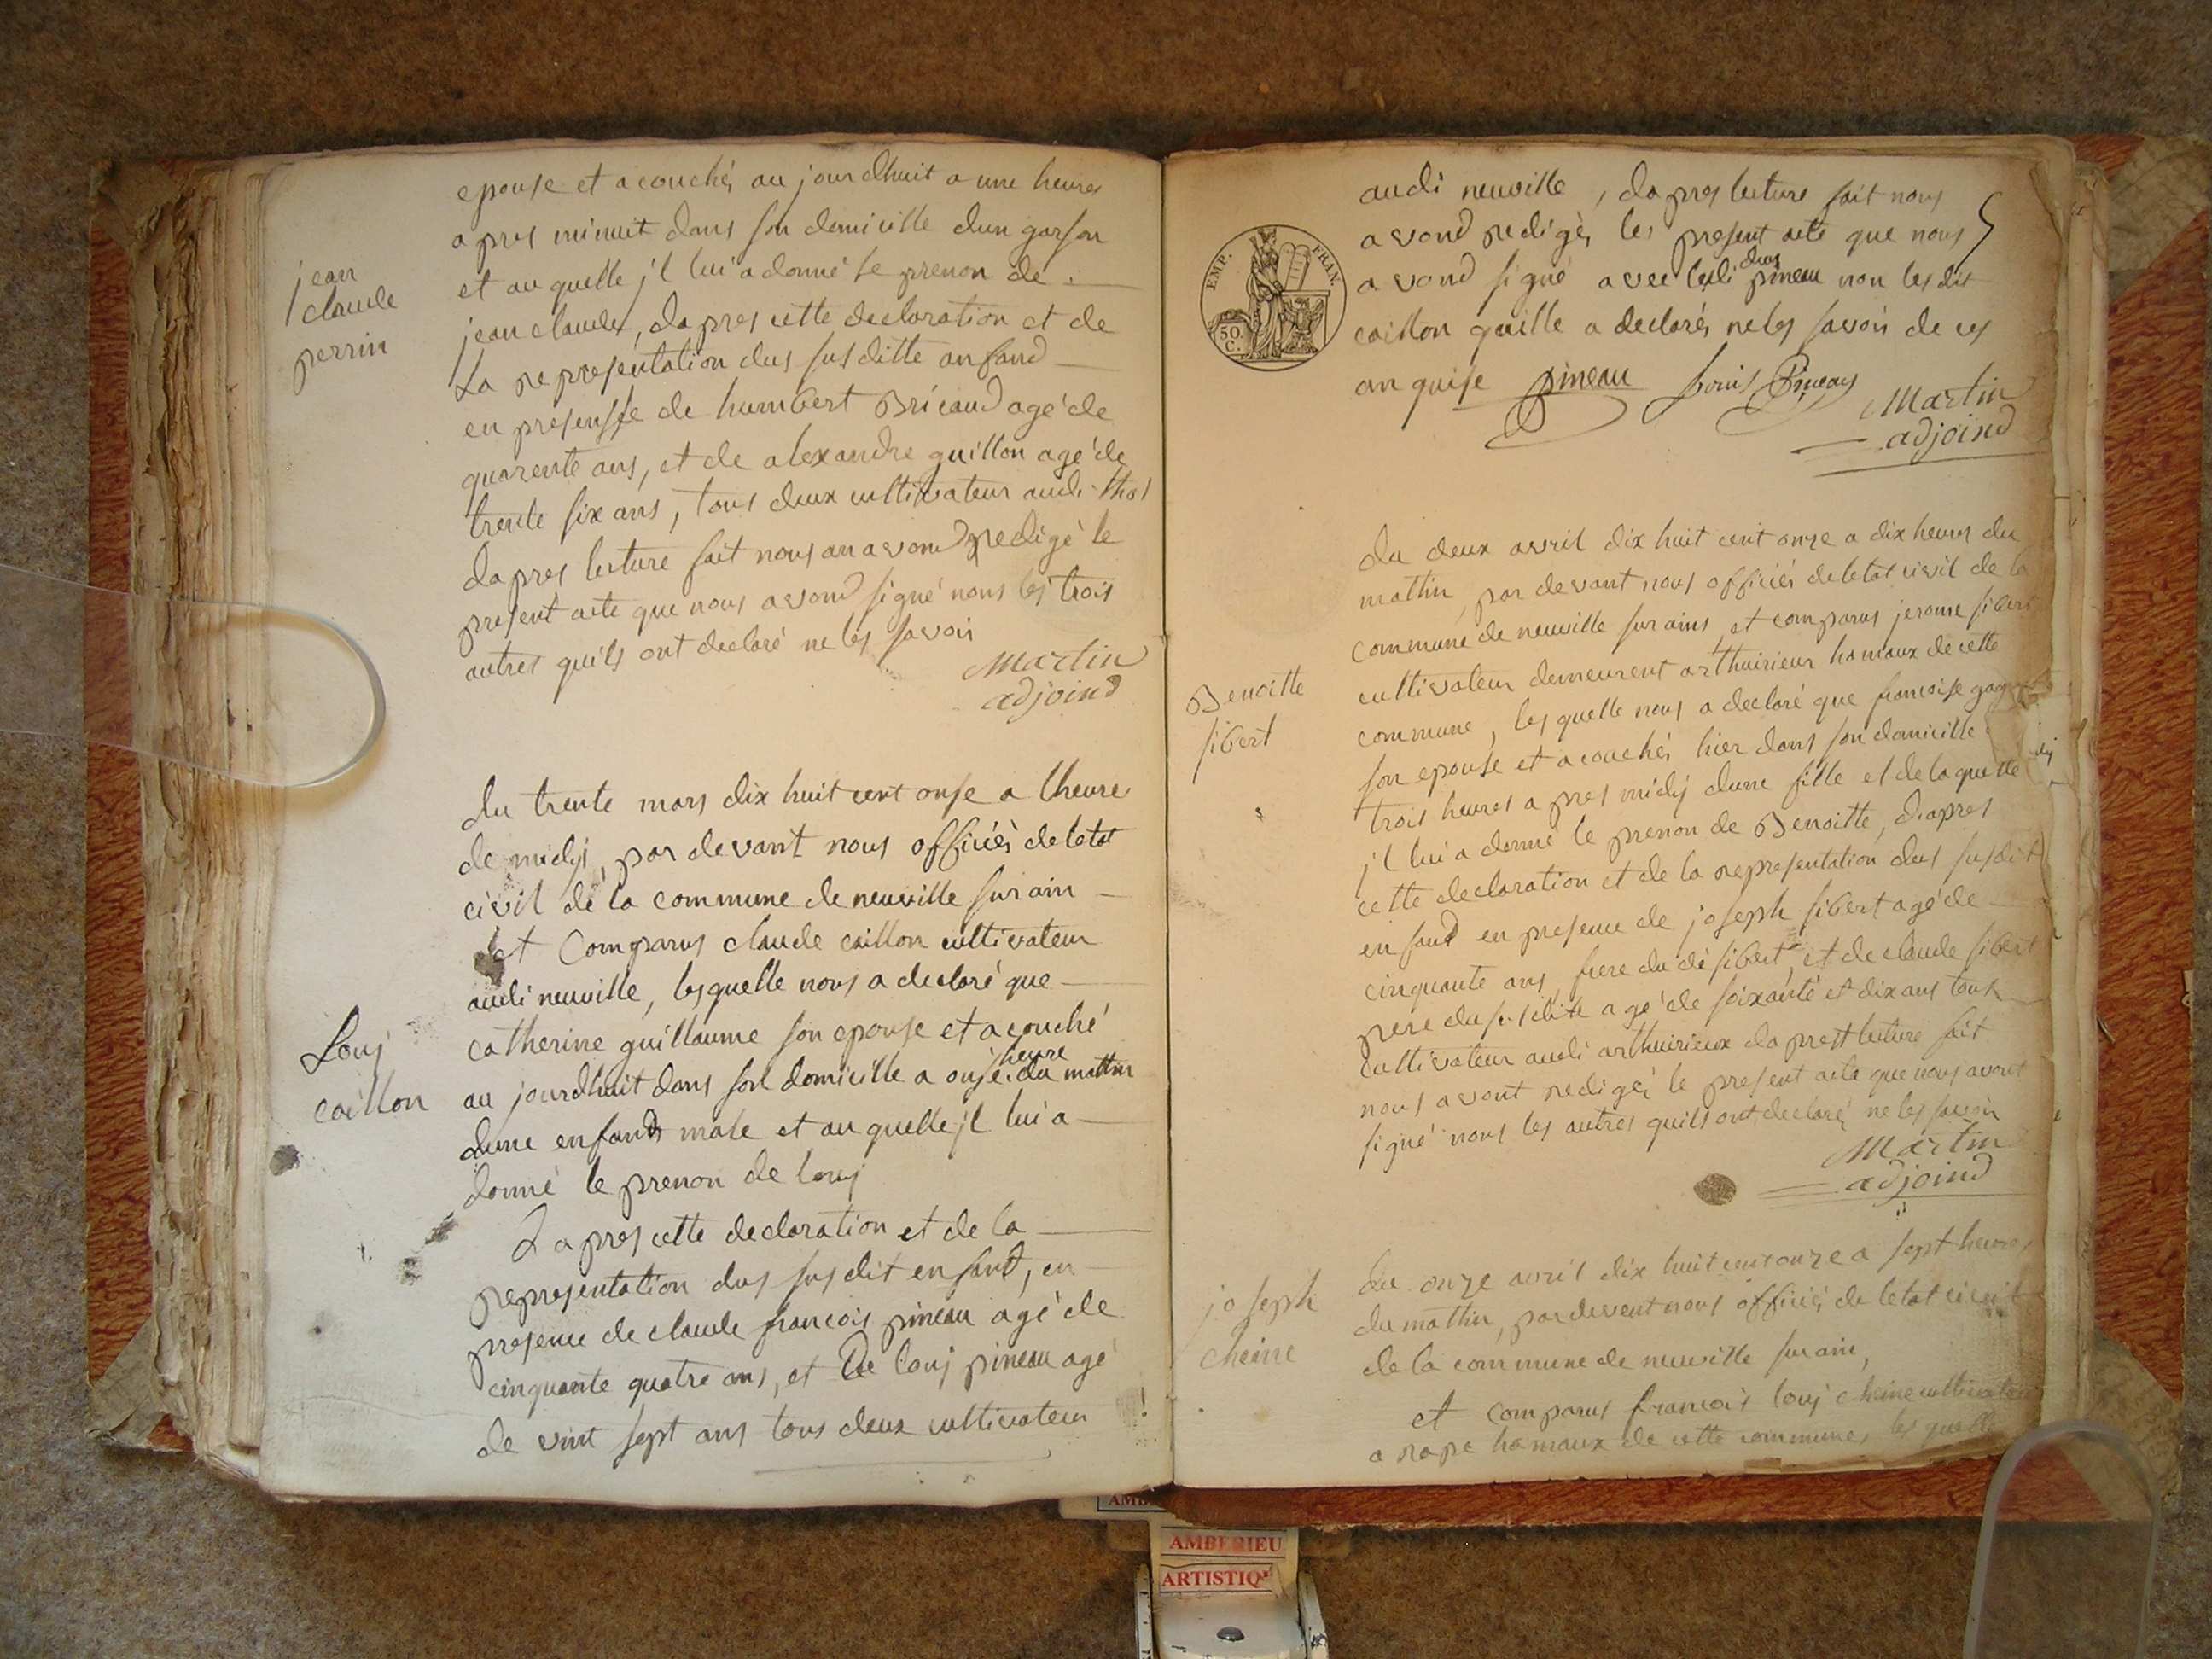 epouse et acouché, au jourdhuit a une heures
apres minuit dans son demicille dun garson
et au quelle jl lui a donné le prenon de
jean
claude
perrin
jean claude, dapres cette declaration et de
La representation dus susditte anfand
en presensse de humbert Bricaud agé de
quarente ans, et de alexandre guillon agé de
trente six ans, tous deux cultivateur audi thol
dapres lecture fait nous an avond redigé le
present acte que nous avond signé nons les trois
autres quils ont declaré ne les savoir
Martin
adjoind
du trente mars dix huit cent onse a lheure
de midy, par devant nous officiés de letat
civil de la commune de neuville sur ain
et Comparus claude caillon cultivateur
audi neuville, lesquelle nous a declaré que
Louj
caillon
catherine guillaume son epouse et acouché
au jourdhuit dans son domicille a onse heure du mattin
dune enfand male et au quelle jl lui a
donné le prenon de louj
Dapres cette declaration et de la
representation dus susdit enfant, en
presence de claude francois pineau agé de
cinquante quatre ans, et De louj pineau agé
de vint sept ans tous deux cultivateur
EMP. FRAN.
50.
C.
audi neuville, dapres lecture fait nous
avond redigés les present acte que nous
avond signé avec lesdi deus pineau non les dit
caillon quille a declarés ne les savoir de ces
an quise pineau Louis Pineau
Martin
adjoind
du deux avril dix huit cent onze a dix heures du
mattin, par devant nous officiés de letat civil de la
commune de neuville sur ains, et comparus jerome sibert
cultivateur demeurent arthuirieux hamaux de cette
Benoitte
sibert
commune, les quelle nous a declaré que francoise
son epouse et acouchés hier dans son domicille
trois heures apres midij dune fille et de laquelle
jl lui a donné le prenon de Benoitte, diapres
cette declaration et de la representation dus susdit
enfand en presence de joseph sibert agé de
cinquante ans, frere du dé sibert, et de claude sibert
pere du susditte agé de soixante et dix ans tous
Cultivateur audi arthuirieux daprest lecture fait
nous avont redigés le present acte que nous avont
signé nons les autres quils ont declaré ne les savoir
Martin
adjoind
joseph
cheine
du onze avril dix huit cent onze a sept heures
du mattin, par devent nous officiés de letat civil
de la commune de neuville sur ain,
et comparus francois louj cheine cultivateur
a rape hamaux de cette commune, les quelle
AMBERIEU
ARTISTIQ